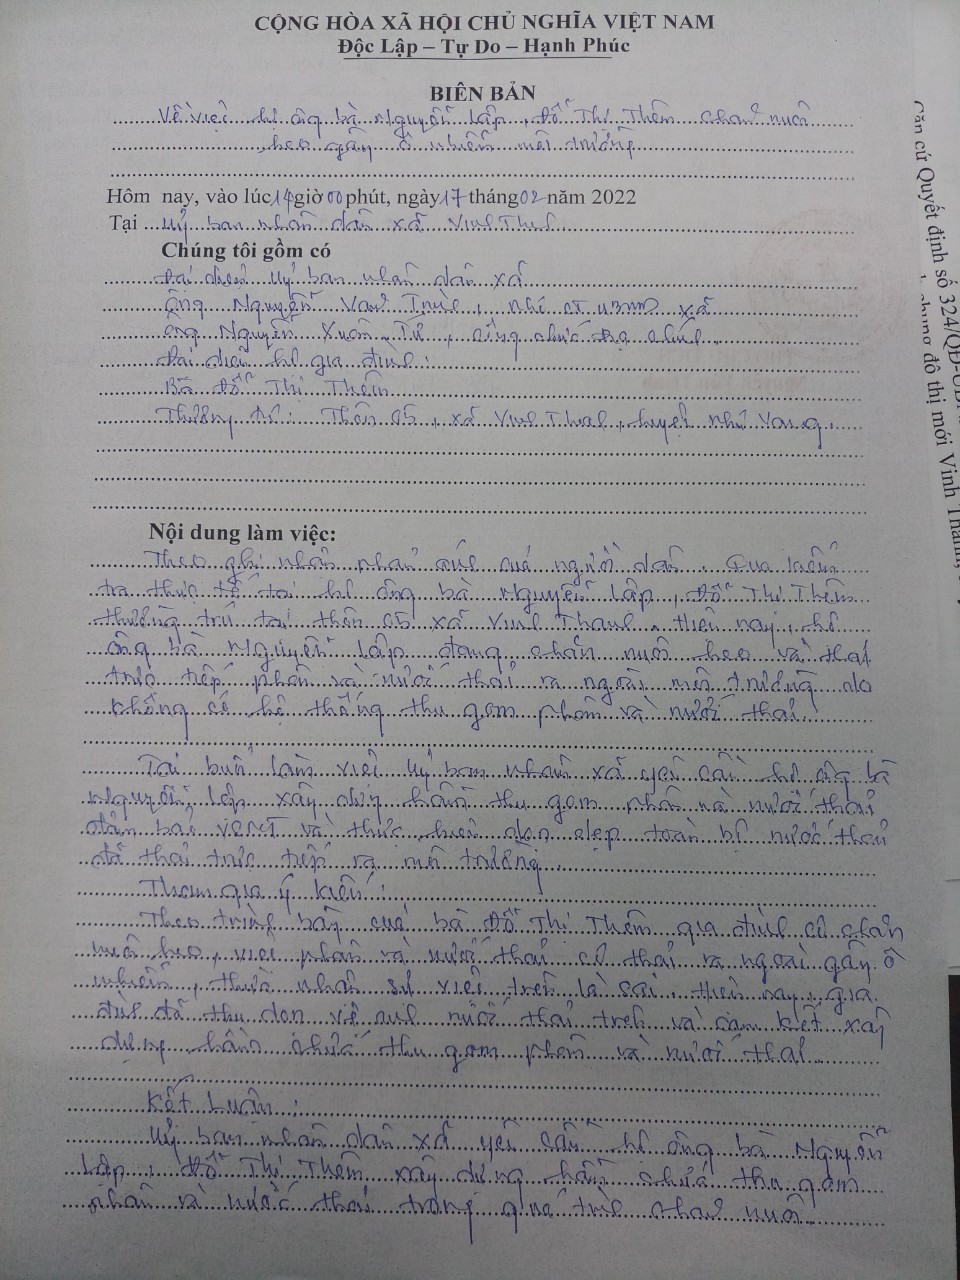 CỘNG HÒA XÃ HỘI CHỦ NGHĨA VIỆT NAM
Độc Lập – Tự Do – Hạnh Phúc
BIÊN BẢN
Về việc hộ ông bà Nguyễn Lập, Đỗ Thị Thêm chăn nuôi
heo gây ô nhiễm môi trường
Hôm nay, vào lúc 14 giờ 00 phút, ngày 17 tháng 02 năm 2022
Tại Uỷ ban nhân dân xã Vĩnh Thạnh
Chúng tôi gồm có
Đại diện Uỷ ban nhân dân xã
Ông Nguyễn Văn, UBND xã
Ông Nguyễn Xuân Tử, công chức địa chính
Đại diện hộ gia đình:
Bà Đỗ Thị Thêm
Thường trú: Thôn 05, xã Vĩnh Thạnh, huyện
Nội dung làm việc:
Theo ghi nhận phản ánh của người dân. Qua kiểm
tra thực tế tại hộ ông bà Nguyễn Lập, Đỗ Thị Thêm
thường trú tại thôn 05 xã Vĩnh Thạnh. Hiện nay, hộ
ông bà Nguyễn Lập đang chăn nuôi heo và thải
trực tiếp phân và nước thải ra ngoài môi trường do
không có hệ thống thu gom phân và nước thải.
Tại buổi làm việc Uỷ ban nhân xã yêu cầu hộ ông bà
Nguyễn Lập xây dựng hầm thu gom phân và nước thải
đảm bảo VSMT và thực hiện dọn dẹp toàn bộ nước thải
đã thải trực tiếp ra môi trường.
Tham gia ý kiến:
Theo trình bày của bà Đỗ Thị Thêm gia đình có chăn
nuôi heo, việc phân và nước thải có thải ra ngoài gây ô
nhiễm, thừa nhận sự việc trên là sai. Hiện nay, gia
đình đã thu dọn vệ sinh nước thải trên và cam kết xây
dựng hầm chứa thu gom phân và nước thải.
Kết Luận:
Uỷ ban nhân dân xã yêu cầu hộ ông bà Nguyễn
Lập, Đỗ Thị Thêm xây dựng hầm chứa thu gom
phân và nước thải trong quá trình chăn nuôi
Căn cứ Quyết định số 324/QĐ-UBN
chung đô thị mới Vĩnh Thạnh,